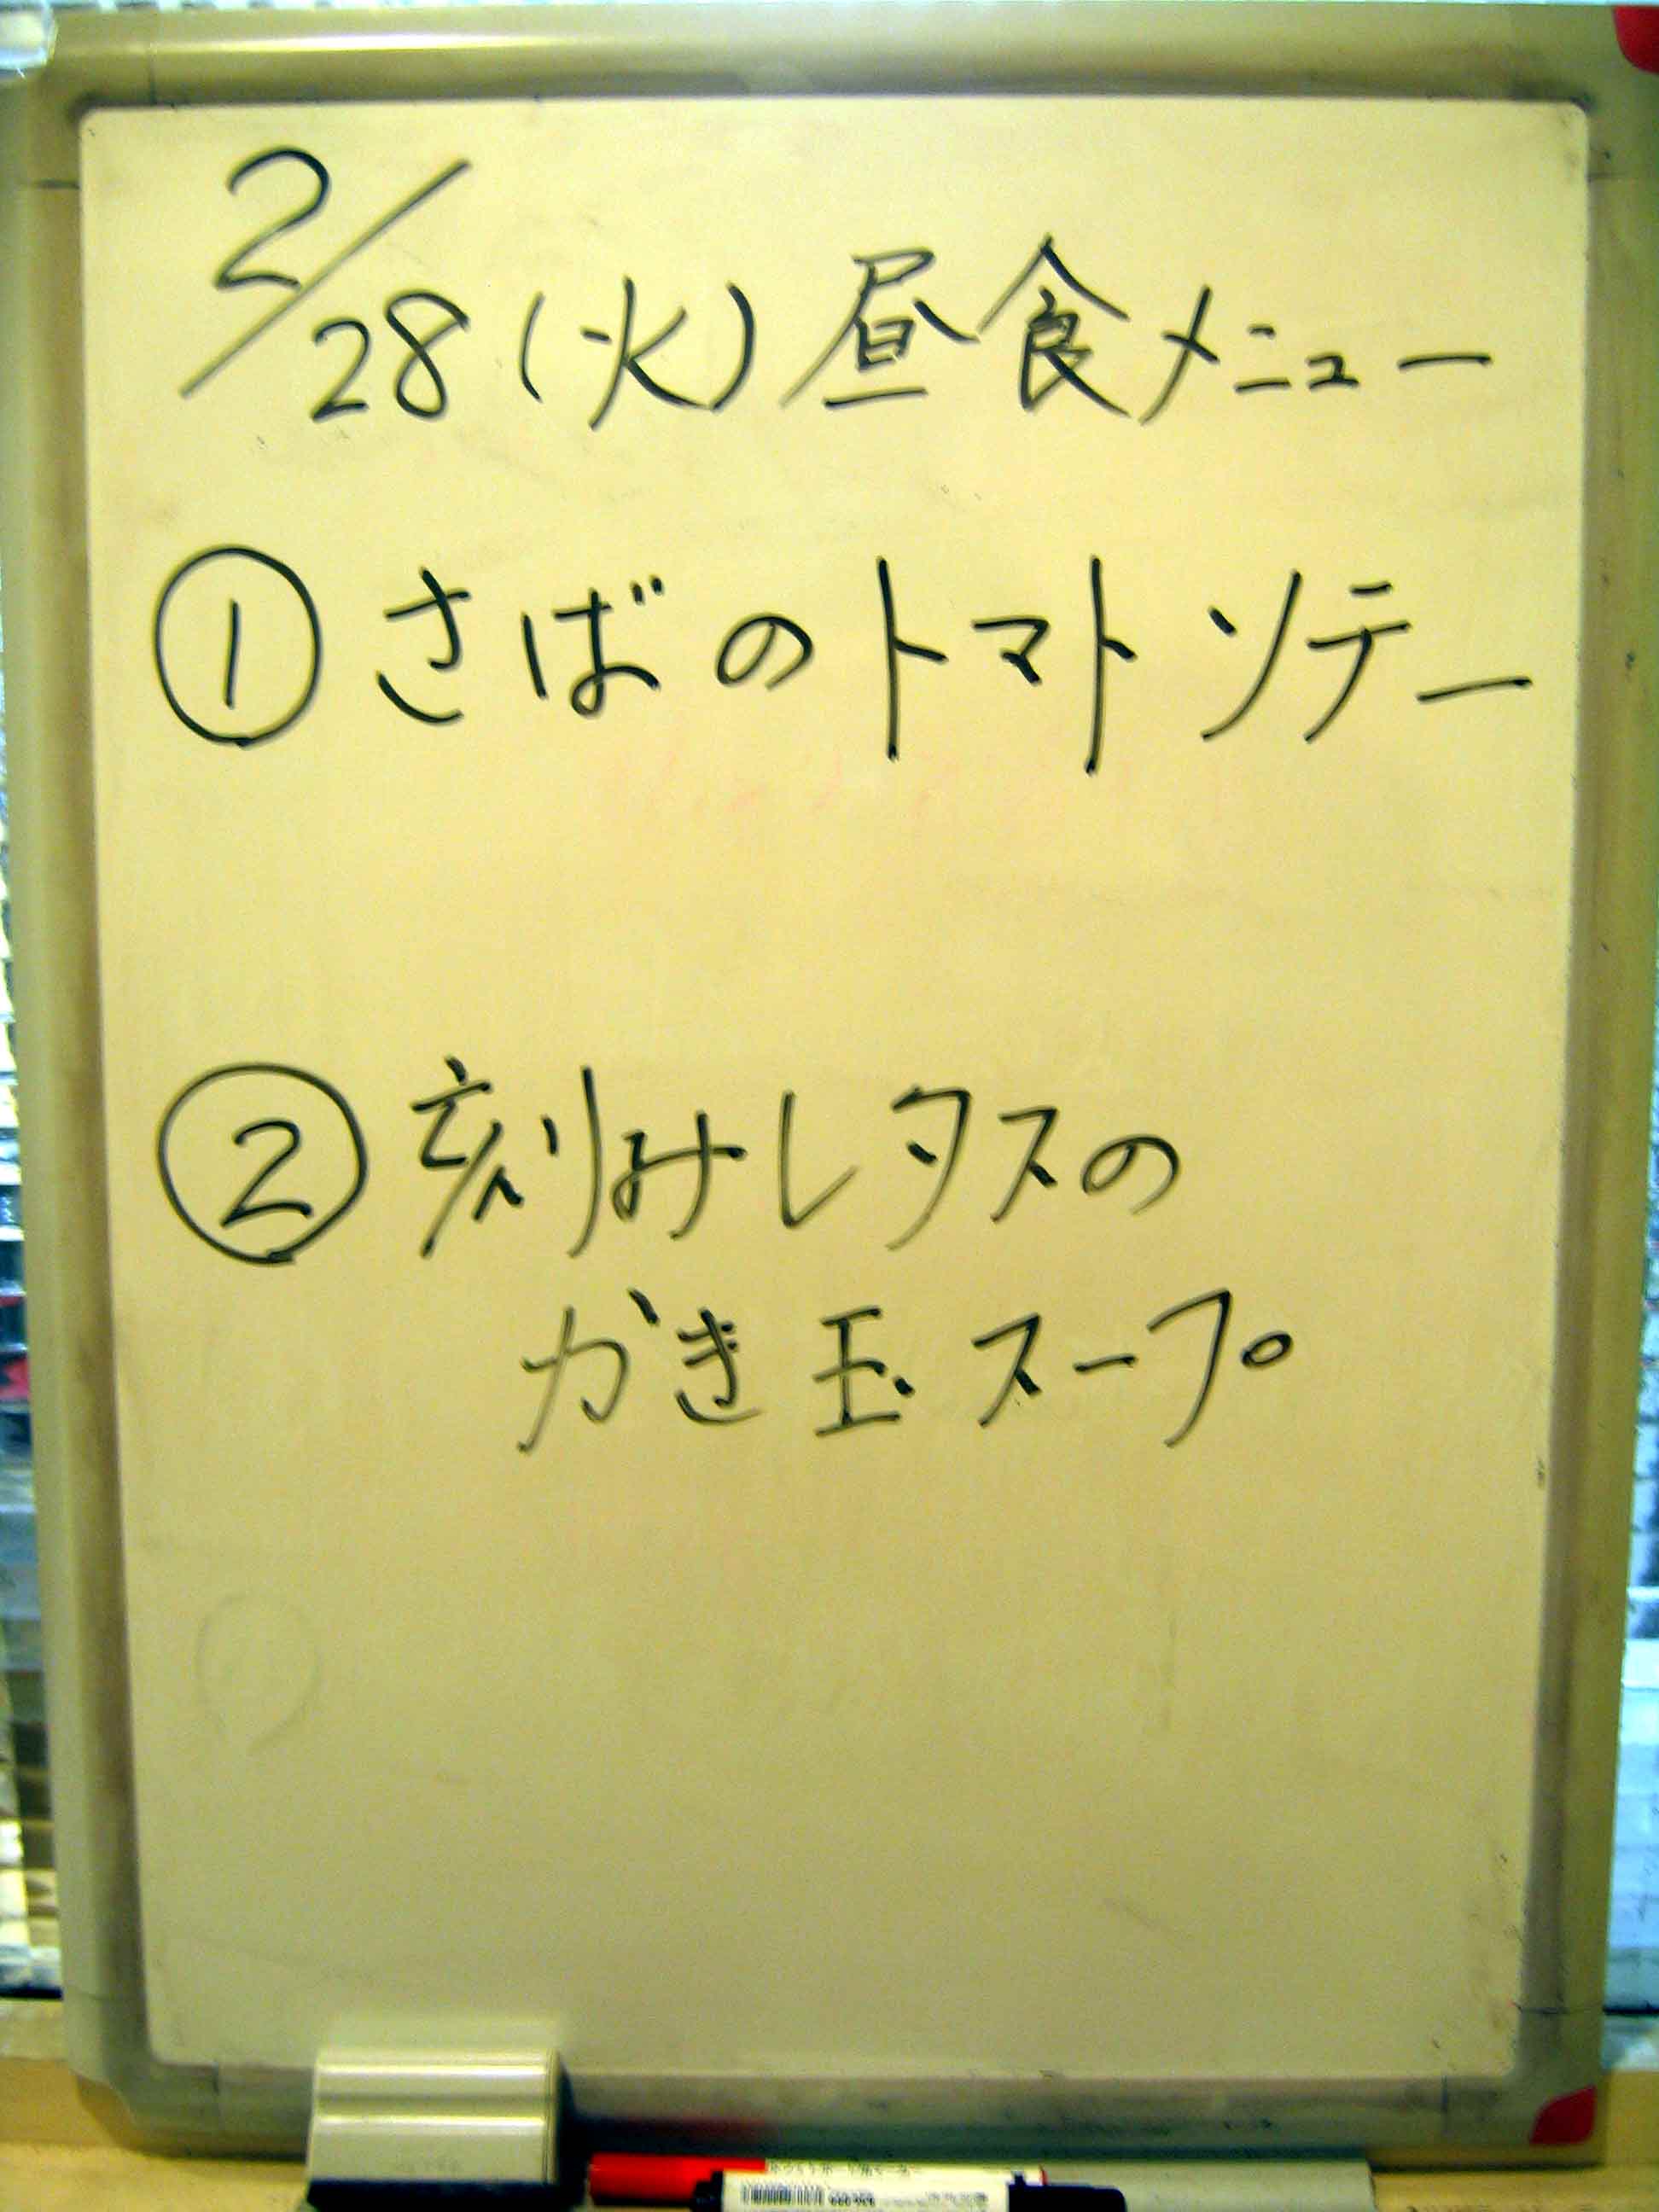 2/28(火)昼食メニュー
①さばのトマトソテー
②刻みレタスの
かき玉スープ